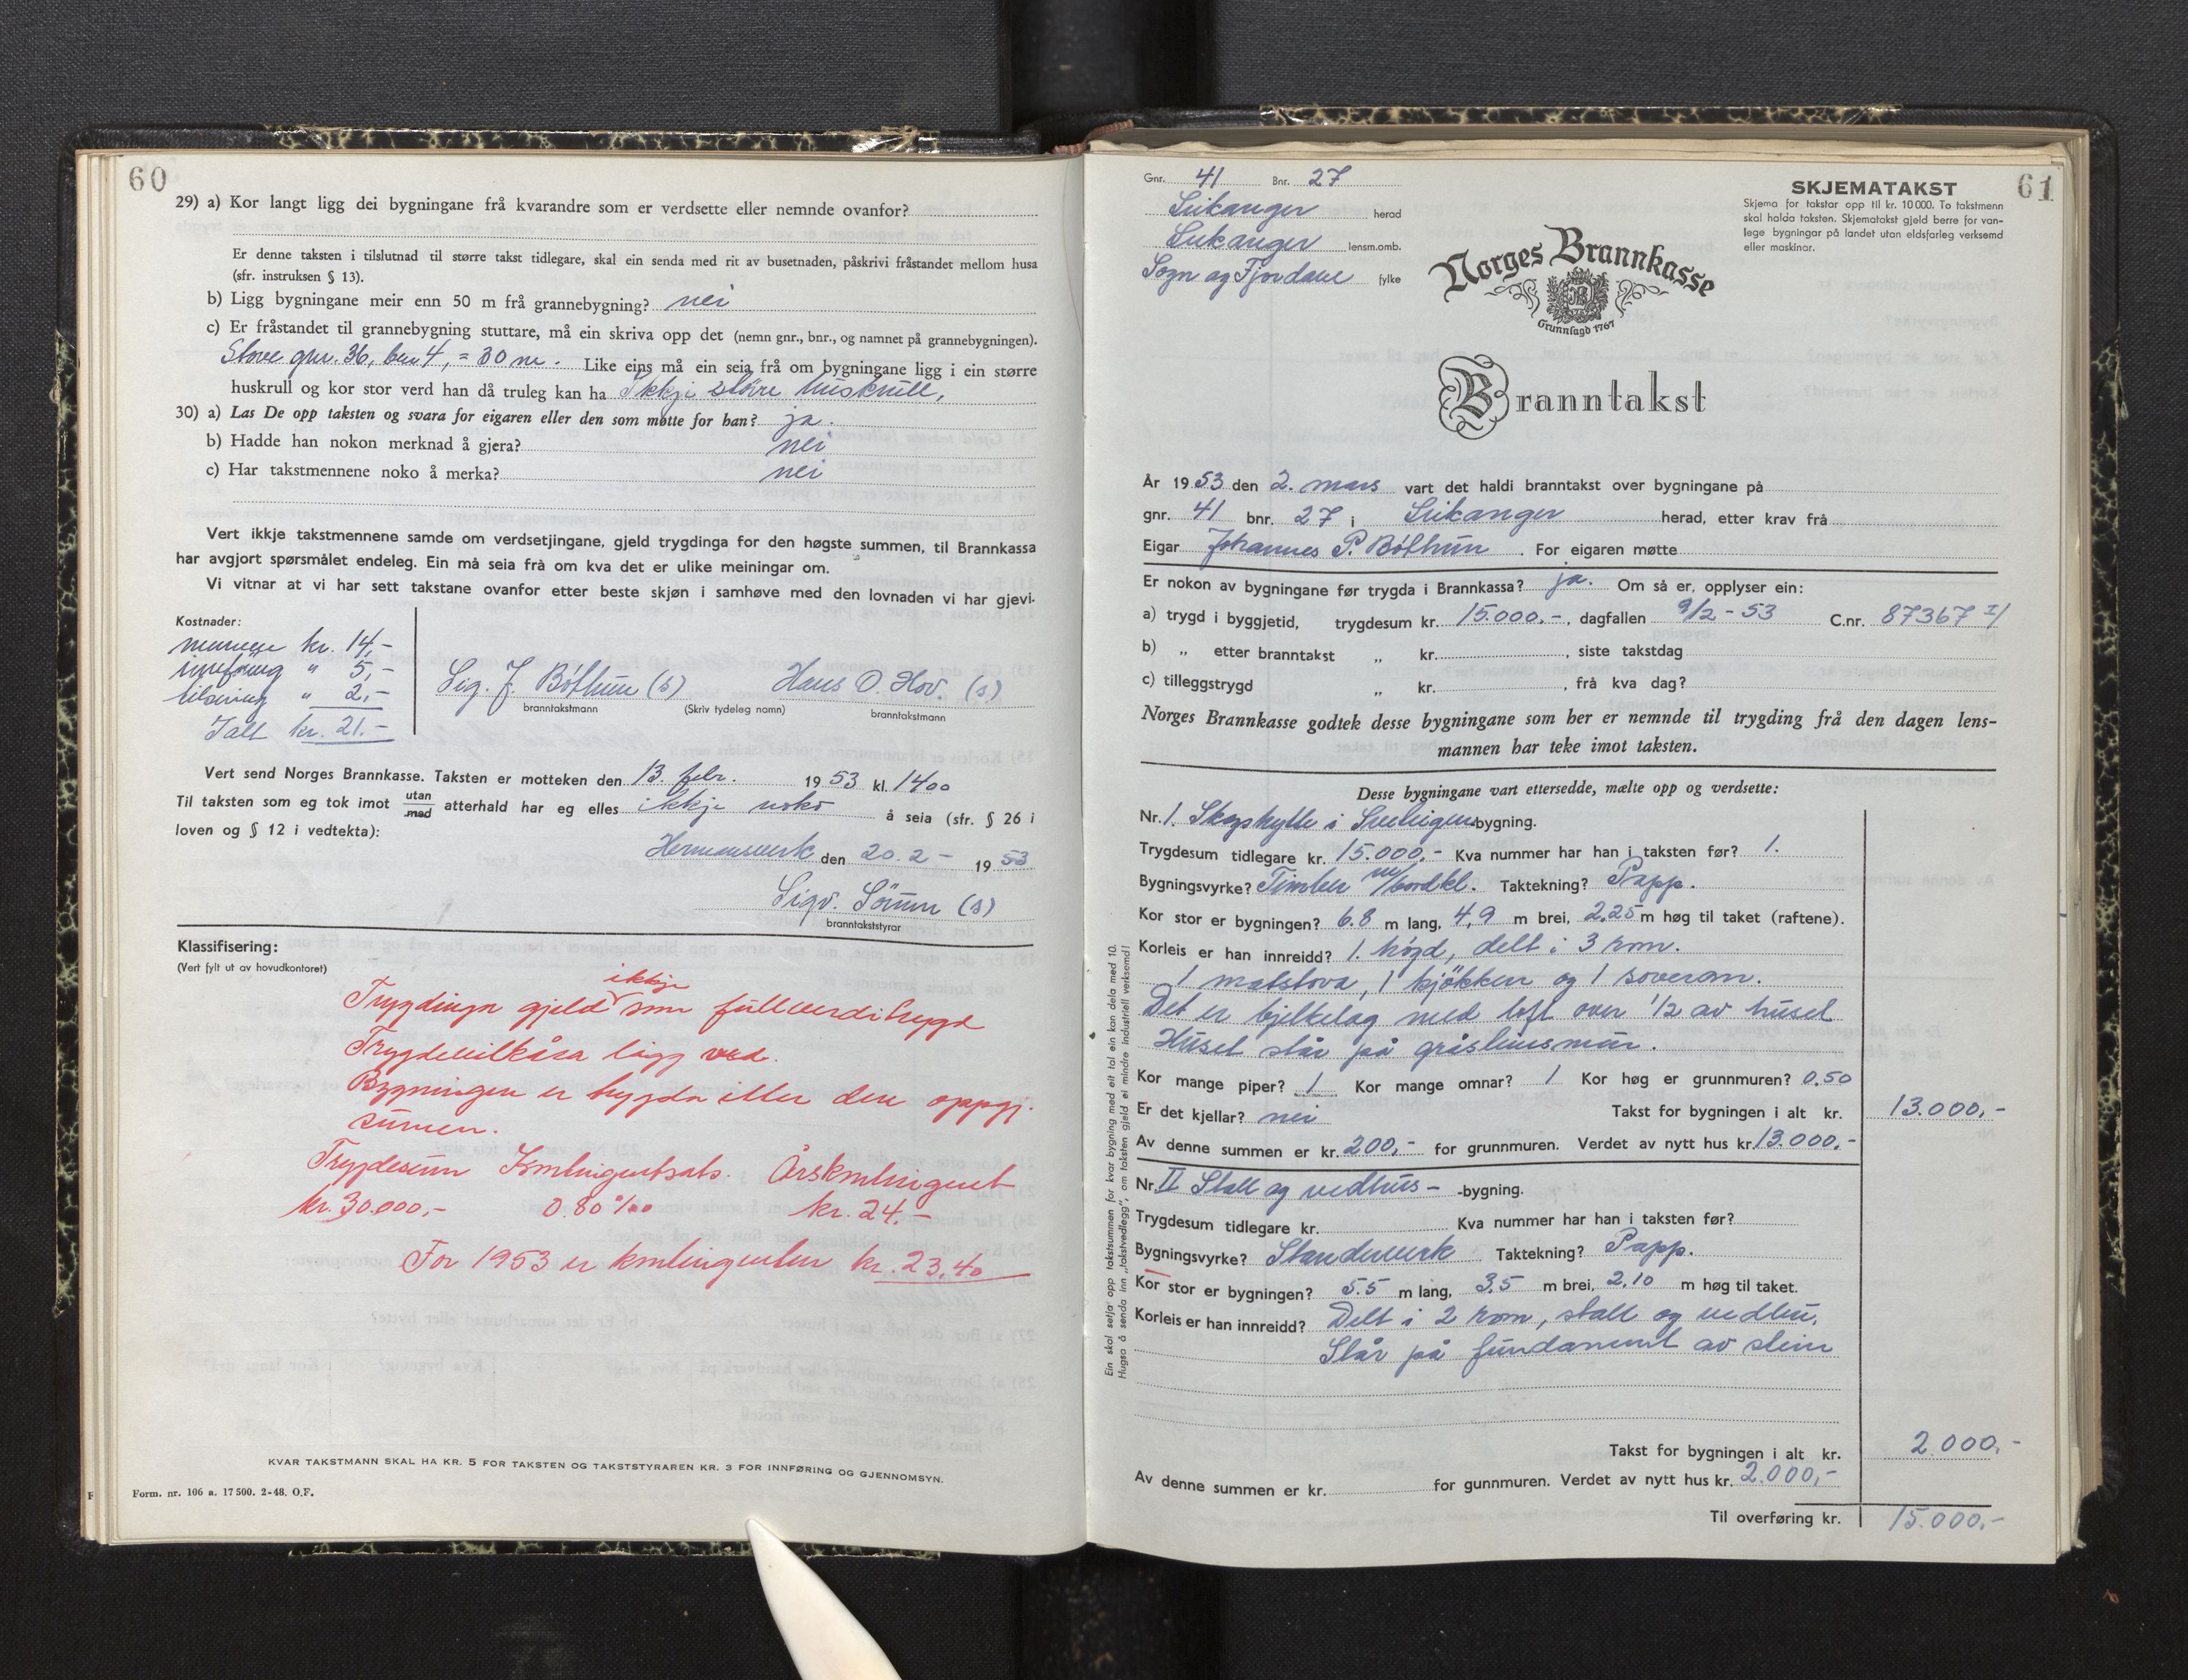 60
29) a) Kor langt ligg dei bygningane frå kvarandre som er verdsette eller nemnde ovanfor?
Er denne taksten i tilslutnad til større takst tidlegare, skal ein senda med rit av busetnaden, påskrivi fråstandet mellom husa
(sfr. instruksen § 13).
b) Ligg bygningane meir enn 50 m frå grannebygning? nei
c) Er fråstandet til grannebygning stuttare, må ein skriva opp det (nemn gnr., bnr., og namnet på grannebygningen).
Stove gnr. 36, bnr 4, = 30 m. Like eins må ein seia frå om bygningane ligg i ein større
huskrull og kor stor verd han då truleg kan ha Ikkje større huskrull,
30) a) Las De opp taksten og svara for eigaren eller den som møtte for han? ja.
b) Hadde han nokon merknad å gjera? nei
c) Har takstmennene noko å merka? nei
Vert ikkje takstmennene samde om verdsetjingane, gjeld trygdinga for den høgste summen, til Brannkassa
har avgjort spørsmålet endeleg. Ein må seia frå om kva det er ulike meiningar om.
Vi vitnar at vi har sett takstane ovanfor etter beste skjøn i samhøve med den lovnaden vi har gjevi.
Kostnader:
mennene kr. 14,-
innføring " 5,-
" 2,-
Ialt kr. 21.-
Sig. J. Böthun (s) Hans O. Hov. (s)
branntakstmann (Skriv tydeleg namn) branntakstmann
Vert send Norges Brannkasse. Taksten er motteken den 13. febr. 1953 kl. 1400
Til taksten som eg tok imot utan/med atterhald har eg elles ikkje noko å seia (sfr. § 26 i
loven og § 12 i vedtekta):
Hermansverk den 20. 2 - 1953
Sigv. (s)
branntakststyrar
Klassifisering:
(Vert fylt ut av hovudkontoret)
Trygdinga gjeld ikkje som fullverditrygd
Trygdevilkåra ligg ved.
Bygningen er bygda etter den oppgj.
sumen.
Trygdesum Kontingentsats. Årskontingent
kr. 30.000,- 0.80 ‰ kr. 24,-
For 1953 er kontingenten kr. 23,40
KVAR TAKSTMANN SKAL HA KR. 5 FOR TAKSTEN OG TAKSTSTYRAREN KR. 3 FOR INNFØRING OG GJENNOMSYN.
Form. nr. 106 a. 17 500. 2-48. O.F.
61
Gnr. 41 Bnr. 27
Leikanger herad
Leikanger lensm.omb.
Sogn og Fjordane fylke
SKJEMATAKST
Skjema for takstar opp til kr. 10 000. To takstmenn
skal halda taksten. Skjematakst gjeld berre for van-
lege bygningar på landet utan eldsfarleg verksemd
eller maskinar.
Norges Brannkasse
Grunnlagd 1767
Branntakst
År 1953 den 2. mars vart det haldi branntakst over bygningane på
gnr. 41 bnr. 27 i Leikanger herad, etter krav frå
Eigar Johannes P. Böthun. For eigaren møtte
Er nokon av bygningane før trygda i Brannkassa? ja. Om så er, opplyser ein:
a) trygd i byggjetid, trygdesum kr. 15.000.-, dagfallen 9/2-53 C.nr. 87367 I/
b) „ etter branntakst „ kr. , siste takstdag
c) tilleggstrygd „ kr. , frå kva dag?
Norges Brannkasse godtek desse bygningane som her er nemnde til trygding frå den dagen lens-
mannen har teke imot taksten.
Desse bygningane vart ettersedde, mælte opp og verdsette:
Nr. 1. Skogshytte i -bygning.
Trygdesum tidlegare kr. 15.000,- Kva nummer har han i taksten før? 1.
Bygningsvyrke? Timber m/bordkl. Taktekning? Papp.
Kor stor er bygningen? 6.8 m lang, 4,9 m brei, 2,25 m høg til taket (raftene).
Korleis er han innreidd? 1. høgd, delt i 3 rom.
1 matstova, 1 kjökken og 1 soverom.
Det er bjelkelag med loft over 1/2 av huset
Huset står på gråsteinsmur.
Kor mange piper? 1 Kor mange omnar? 1 Kor høg er grunnmuren? 0.50
Er det kjellar? nei Takst for bygningen i alt kr. 13.000,-
Av denne summen er kr. 200,- for grunnmuren. Verdet av nytt hus kr. 13.000,-
Nr. II Stall og vedhus- -bygning.
Trygdesum tidlegare kr. Kva nummer har han i taksten før?
Bygningsvyrke? Standerverk Taktekning? Papp.
Kor stor er bygningen? 5.5 m lang, 3,5 m brei, 2,10 m høg til taket.
Korleis er han innreidd? Delt i 2 rom, stall og vedhus.
Står på fundament av stein
Takst for bygningen i alt kr. 2.000,-
Av denne summen er kr. for gunnmuren. Verdet av nytt hus kr. 2.000,-
Til overføring kr. 15.000,-
Ein skal setja opp takstsummen for kvar bygning med eit tal ein kan dela med 10.
Hugsa å senda inn „takstvedlegg", om taksten gjeld ei mindre industriell verksemd!